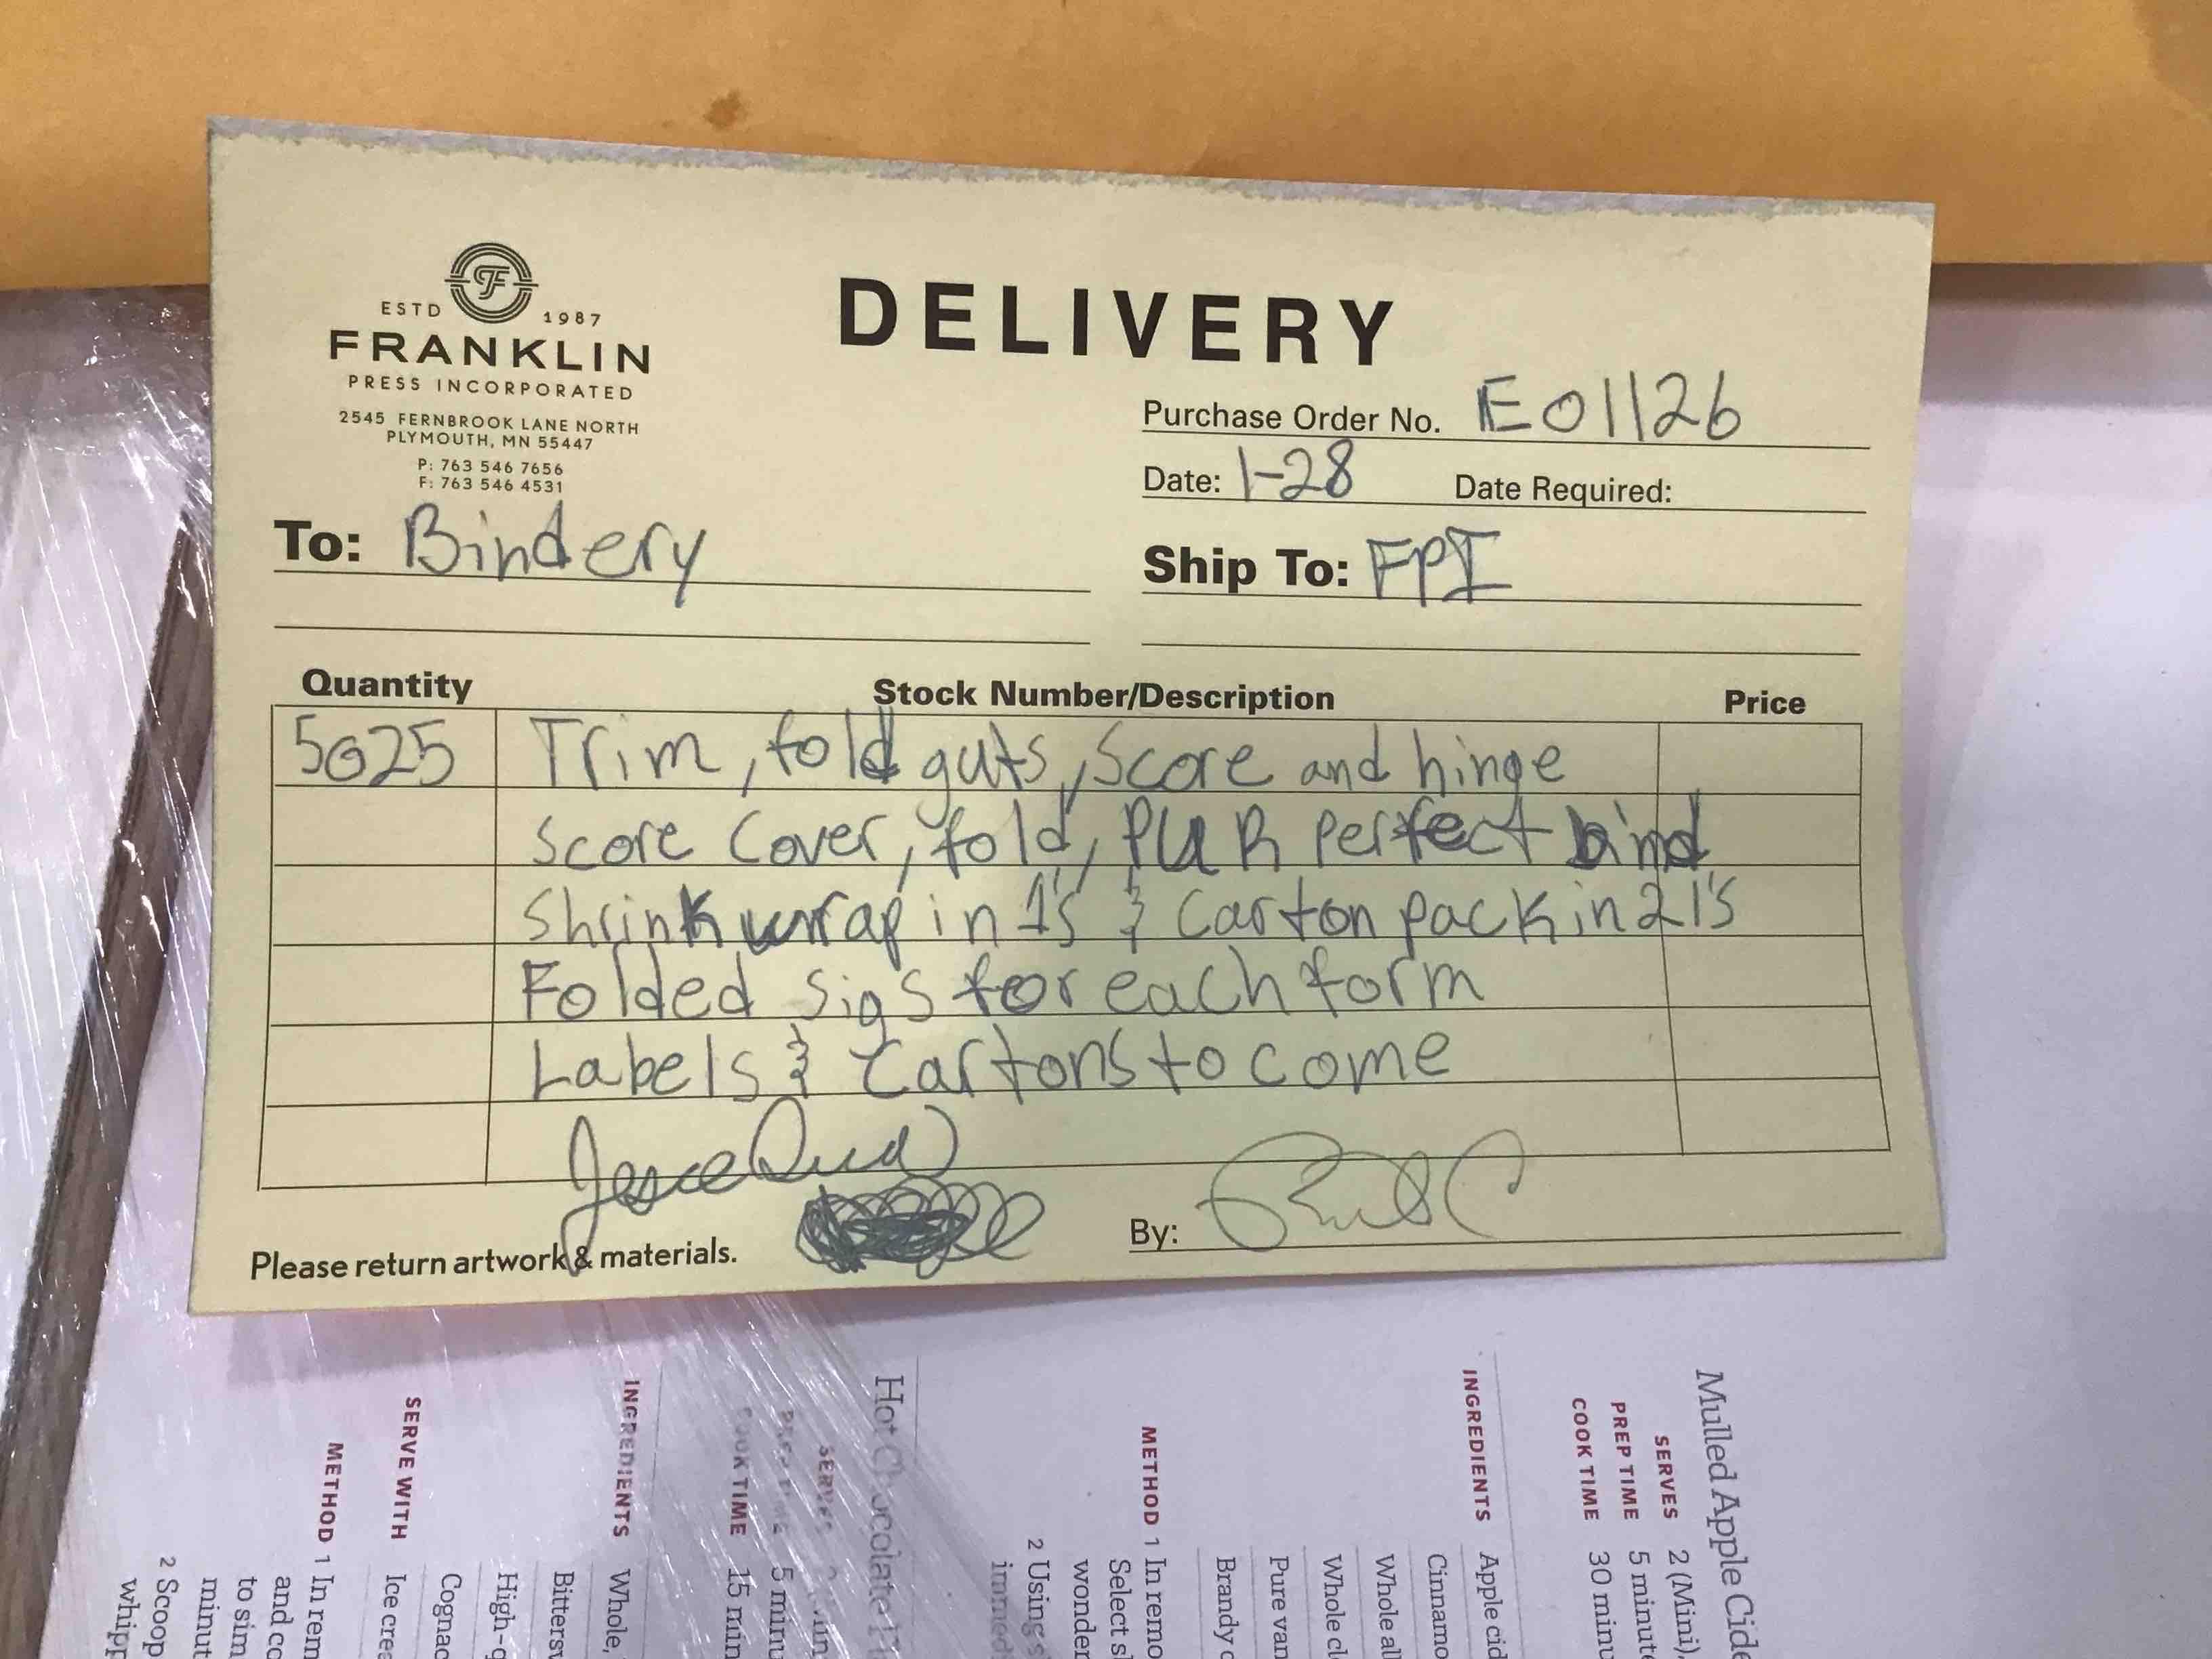 ESTD 1987
FRANKLIN
PRESS INCORPORATED
2545 FERNBROOK LANE NORTH
PLYMOUTH, MN 55447
P: 763 546 7656
F: 763 546 4531
DELIVERY
Purchase Order No. E01126
Date: 1-28 Date Required:
To: Bindery
Ship To: FPI
Quantity Stock Number/Description Price
5025 Trim, fold guts, Score and hinge
Score Cover, fold, PUR Perfect bind
Shrink wrap in 1's & Carton pack in 21's
Folded sigs for each form
Labels & Cartons to come
Please return artwork & materials.
By:
Mulled Apple Cide
SERVES 2 (Mini),
PREP TIME 5 minute
COOK TIME 30 minu
INGREDIENTS Apple cid
Cinnamo
Whole all
Whole cl
Pure van
Brandy
METHOD 1 In remo
Select s
wonder
2 Using s
immed
Hot Chocolate
SERVES
PREP TIME 5 minu
COOK TIME 15 min
INGREDIENTS Whole,
Bittersw
High-
Cognac
SERVE WITH Ice crea
METHOD 1 In rem
and co
to sim
minut
2 Scoop
whipp